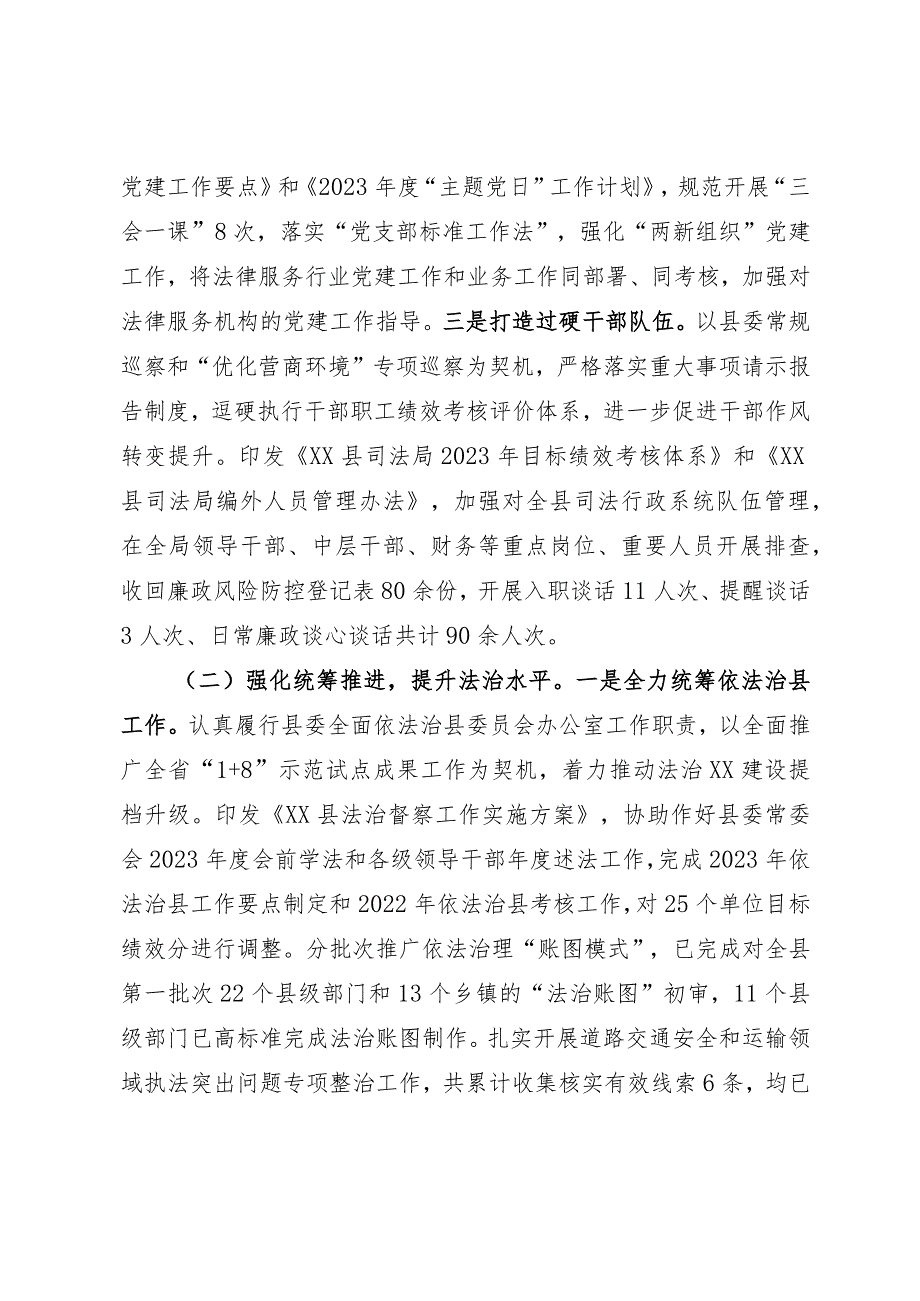 党建工作要点》和《2023 年度“主题党日”工作计划》，规范开展“三
会一课”8 次，落实“党支部标准工作法”，强化“两新组织”党建
工作，将法律服务行业党建工作和业务工作同部署、同考核，加强对
法律服务机构的党建工作指导。三是打造过硬干部队伍。以县委常规
巡察和“优化营商环境”专项巡察为契机，严格落实重大事项请示报
告制度，逗硬执行干部职工绩效考核评价体系，进一步促进干部作风
转变提升。印发《XX 县司法局 2023 年目标绩效考核体系》和《XX
县司法局编外人员管理办法》，加强对全县司法行政系统队伍管理，
在全局领导干部、中层干部、财务等重点岗位、重要人员开展排查，
收回廉政风险防控登记表 80 余份，开展入职谈话 11 人次、提醒谈话
3 人次、日常廉政谈心谈话共计 90 余人次。
（二）强化统筹推进，提升法治水平。一是全力统筹依法治县
工作。认真履行县委全面依法治县委员会办公室工作职责，以全面推
广全省“1+8”示范试点成果工作为契机，着力推动法治 XX 建设提
档升级。印发《XX 县法治督察工作实施方案》，协助作好县委常委
会 2023 年度会前学法和各级领导干部年度述法工作，完成 2023 年依
法治县工作要点制定和 2022 年依法治县考核工作，对 25 个单位目标
绩效分进行调整。分批次推广依法治理“账图模式”，已完成对全县
第一批次 22 个县级部门和 13 个乡镇的“法治账图”初审，11 个县
级部门已高标准完成法治账图制作。扎实开展道路交通安全和运输领
域执法突出问题专项整治工作，共累计收集核实有效线索 6 条，均已